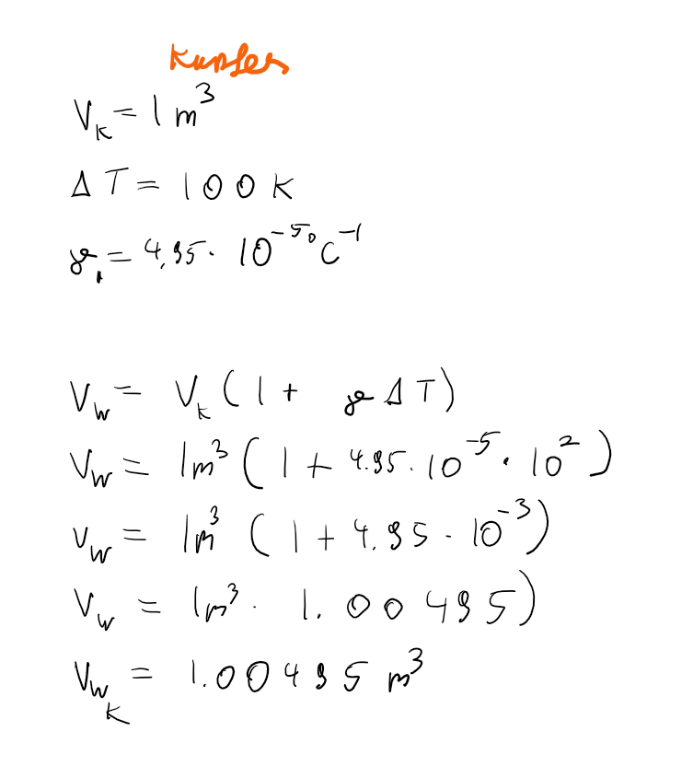 Kupfer
V_K = 1 m³
ΔT = 100 K
γ₁ = 4,95 · 10⁻⁵ °C⁻¹
V_W = V_K (1 + γ ΔT)
V_W = 1m³ (1 + 4.95 · 10⁻⁵ · 10²)
V_W = 1m³ (1 + 4.95 · 10⁻³)
V_W = 1m³ · 1.00495)
V_W_K = 1.00495 m³